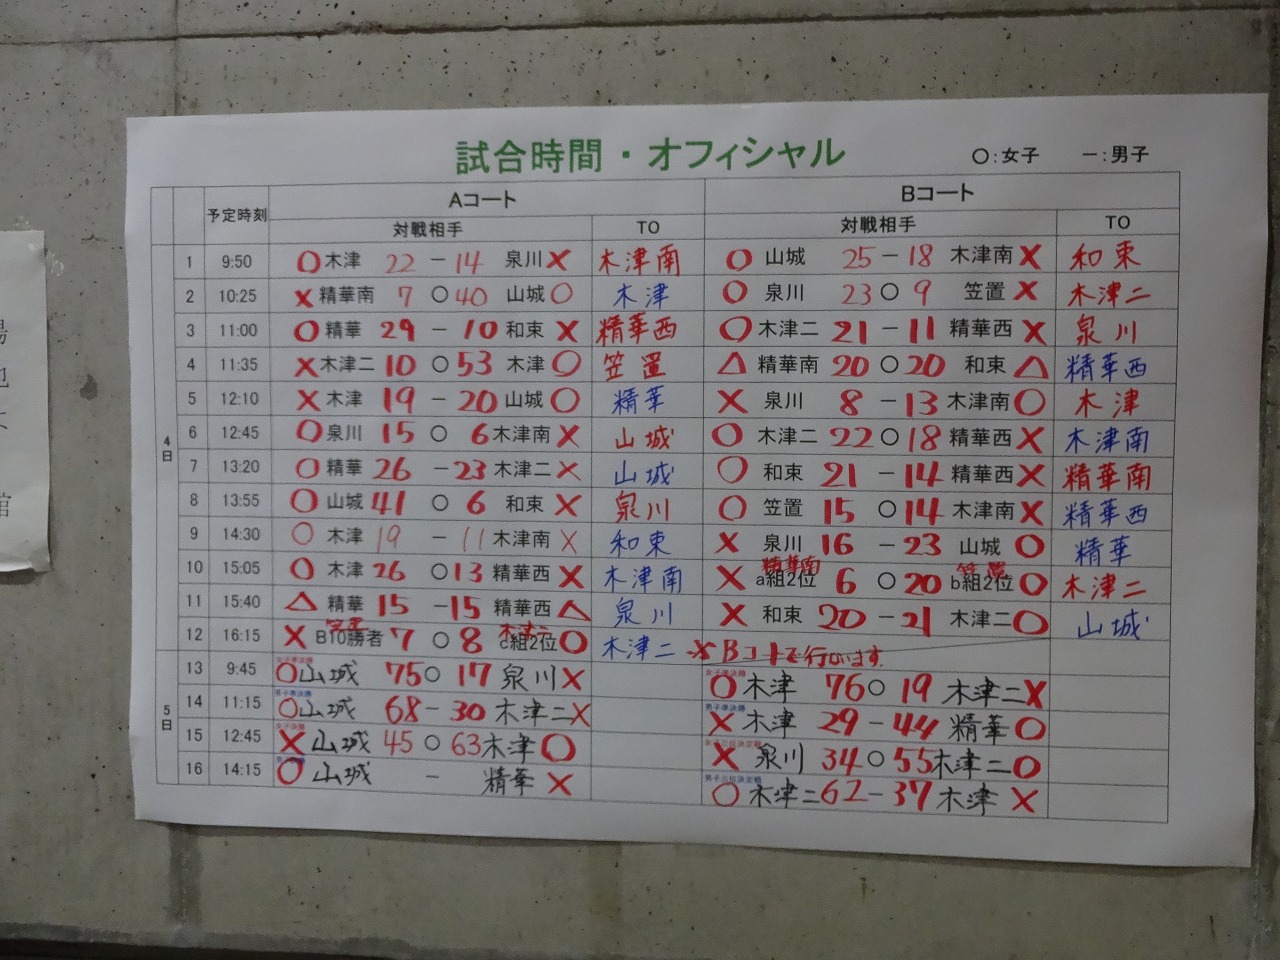 試合時間・オフィシャル
○:女子 －:男子
予定時刻 Aコート Bコート
対戦相手 TO 対戦相手 TO
4日
1 9:50 ○ 木津 22 － 14 泉川 × 木津南 ○ 山城 25 － 18 木津南 × 和束
2 10:25 × 精華南 7 ○ 40 山城 ○ 木津 ○ 泉川 23 ○ 9 笠置 × 木津二
3 11:00 ○ 精華 29 － 10 和束 × 精華西 ○ 木津二 21 － 11 精華西 × 泉川
4 11:35 × 木津二 10 ○ 53 木津 ○ 笠置 △ 精華南 20 ○ 20 和束 △ 精華西
5 12:10 × 木津 19 － 20 山城 ○ 精華 × 泉川 8 － 13 木津南 ○ 木津
6 12:45 ○ 泉川 15 ○ 6 木津南 × 山城 ○ 木津二 22 ○ 18 精華西 × 木津南
7 13:20 ○ 精華 26 － 23 木津二 × 山城 ○ 和束 21 － 14 精華西 × 精華南
8 13:55 ○ 山城 41 ○ 6 和束 × 泉川 ○ 笠置 15 ○ 14 木津南 × 精華西
9 14:30 ○ 木津 19 － 11 木津南 × 和束 × 泉川 16 － 23 山城 ○ 精華
10 15:05 ○ 木津 26 ○ 13 精華西 × 木津南 × 精華南 a組2位 6 ○ 20 笠置 b組2位 ○ 木津二
11 15:40 △ 精華 15 － 15 精華西 △ 泉川 × 和束 20 － 21 木津二 ○ 山城
12 16:15 × 笠置 B10勝者 7 ○ 8 木津二 c組2位 ○ 木津二 ※Bコートで行います
5日
13 9:45 女子準決勝 ○ 山城 75 ○ 17 泉川 × 女子準決勝 ○ 木津 76 ○ 19 木津二 ×
14 11:15 男子準決勝 ○ 山城 68 － 30 木津二 × 男子準決勝 × 木津 29 － 44 精華 ○
15 12:45 女子決勝 × 山城 45 ○ 63 木津 ○ 女子三位決定戦 × 泉川 34 ○ 55 木津二 ○
16 14:15 ○ 山城 － 精華 × 男子三位決定戦 ○ 木津二 62 － 37 木津 ×
館